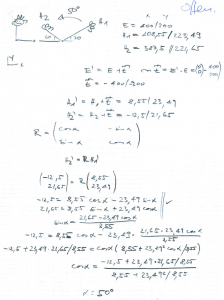 Offen.
50°
H2
H1
x y
E = 400/200
H1 = 408,55/223,49
H2 = 387,5/221,65
E' = E+t⃗
t⃗ = -400/200
H1' = H1+t⃗ = 8,55/23,49
H2' = H2+t⃗ = -12,5/21,65
R = (cosα -sinα
sinα cosα)
H2' = R H1'
(-12,5 21,65) = R (8,55 23,49)
-12,5 = 8,55 cosα - 23,49 sinα
21,65 = 8,55 sinα + 23,49 cosα
sinα = 21,65 - 23,49 cosα / 8,55
-12,5 = 8,55 cosα - 23,49 · 21,65 - 23,49 cosα / 8,55
-12,5 + 23,49 · 21,65/8,55 = cosα (8,55 + 23,49² /8,55)
cosα = -12,5 + 23,49 · 21,65/8,55 / 8,55 + 23,49²/8,55
α = 50°